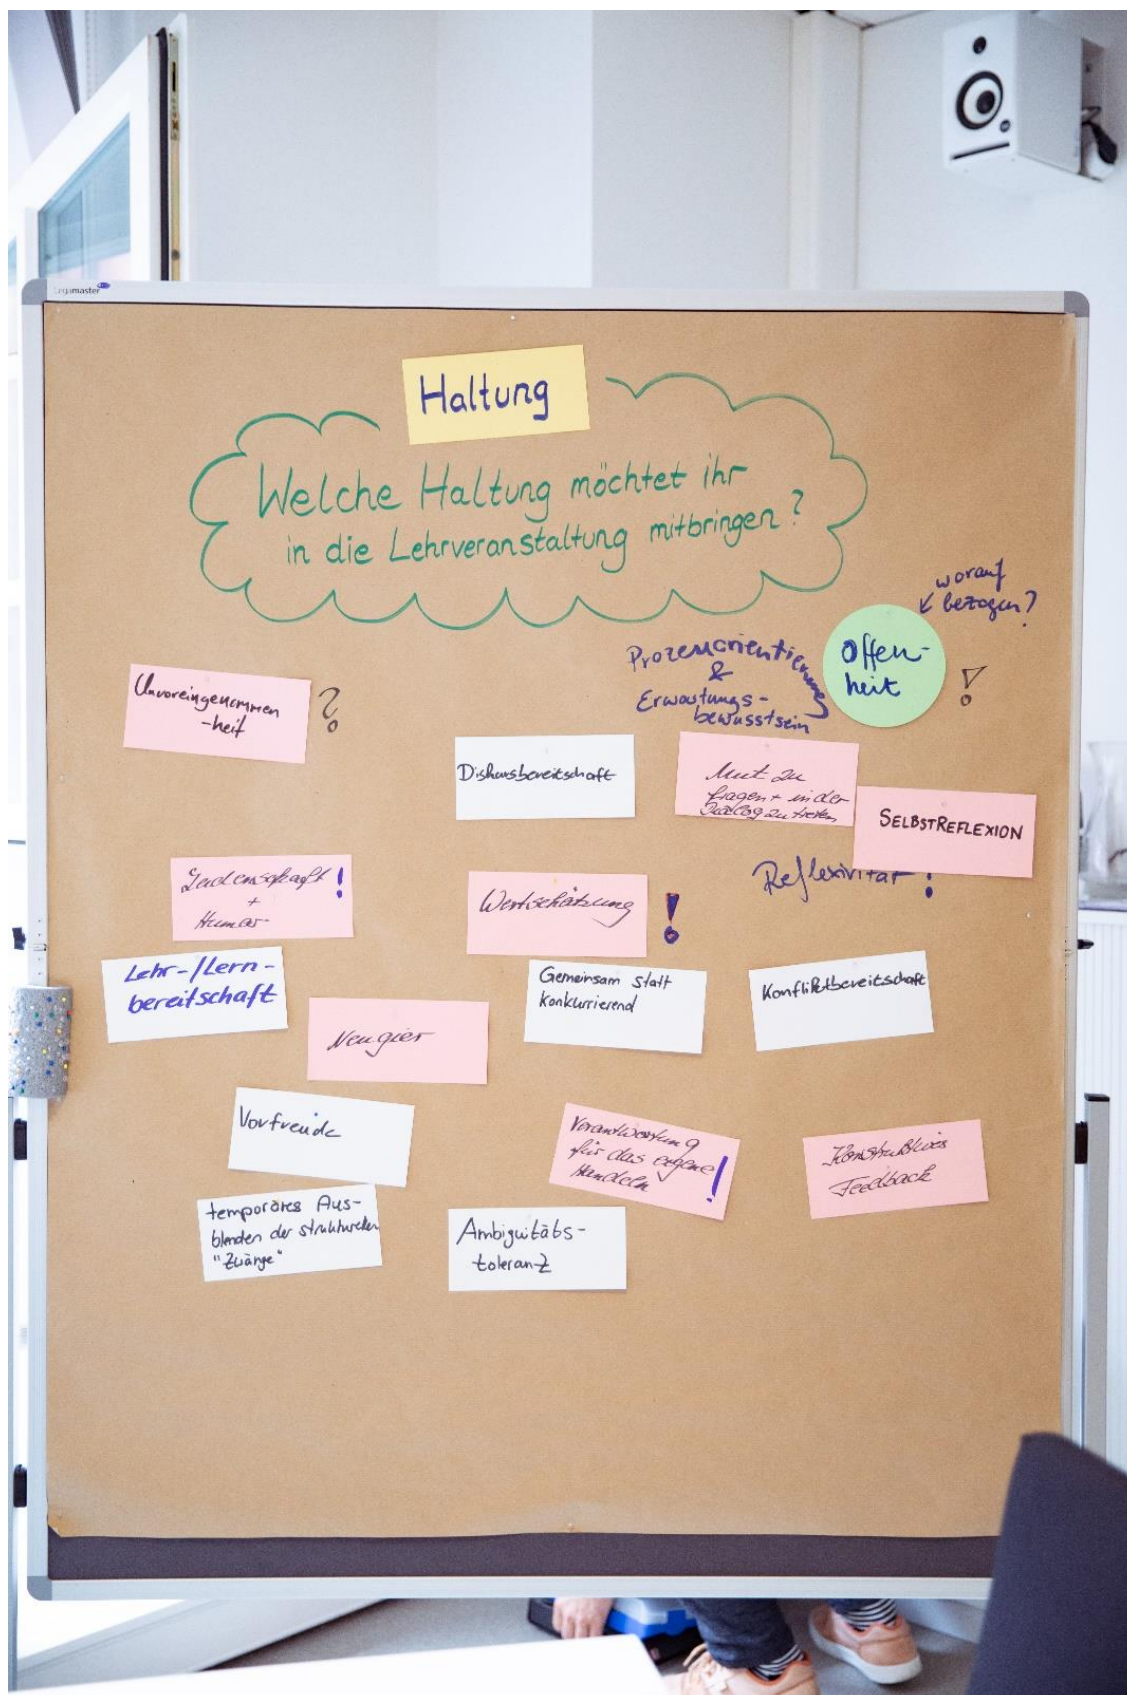 Legamaster
Haltung
Welche Haltung möchtet ihr
in die Lehrveranstaltung mitbringen?
worauf
bezogen?
Offen-
heit
!
Prozessorientierung
&
Erwartungs-
bewusstsein
Unvoreingenommen
-heit
?
Diskursbereitschaft
Mut zu
fragen + in den
Dialog zu treten
SELBSTREFLEXION
Reflexivität !
Leidenschaft !
+
Humor
Wertschätzung !
Lehr-/Lern-
bereitschaft
Gemeinsam statt
konkurrierend
Konfliktbereitschaft
Neugier
Vorfreude
Verantwortung
für das eigene
Handeln !
Konstruktives
Feedback
temporäres Aus-
blenden der strukturellen
"Zwänge"
Ambiguitäts-
toleranz